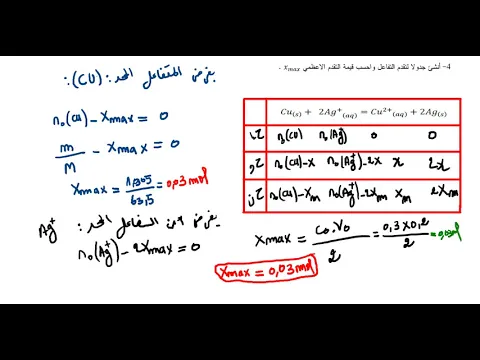 4- أنشئ جدولا لتقدم التفاعل واحسب قيمة التقدم الاعظمي xmax .
نفرض المتفاعل المحد (Cu):
n₀(Cu) - xmax = 0
m/M - xmax = 0
xmax = 1,905/63,5 = 0,03 mol
Cu(s) + 2Ag⁺(aq) = Cu²⁺(aq) + 2Ag(s)
n₀(Cu) n₀(Ag⁺) 0 0
n₀(Cu)-x n₀(Ag⁺)-2x x 2x
n₀(Cu)-xm n₀(Ag⁺)-2xm xm 2xm
نفرض أن المتفاعل المحد: Ag⁺
n₀(Ag⁺) - 2xmax = 0
xmax = C₀.V₀/2 = 0,3x0,2/2 = 0,03mol
xmax = 0,03 mol